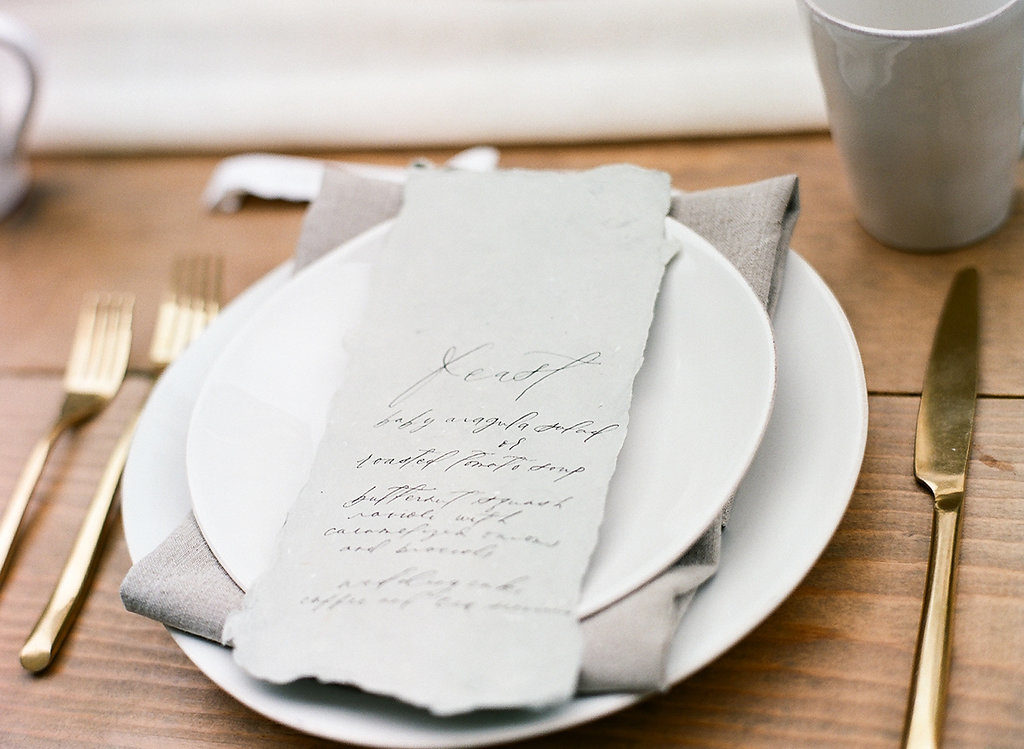 feast
baby arugula salad
or
roasted tomato soup
butternut squash
ravioli with
caramelized onions
and broccoli
coffee and tea